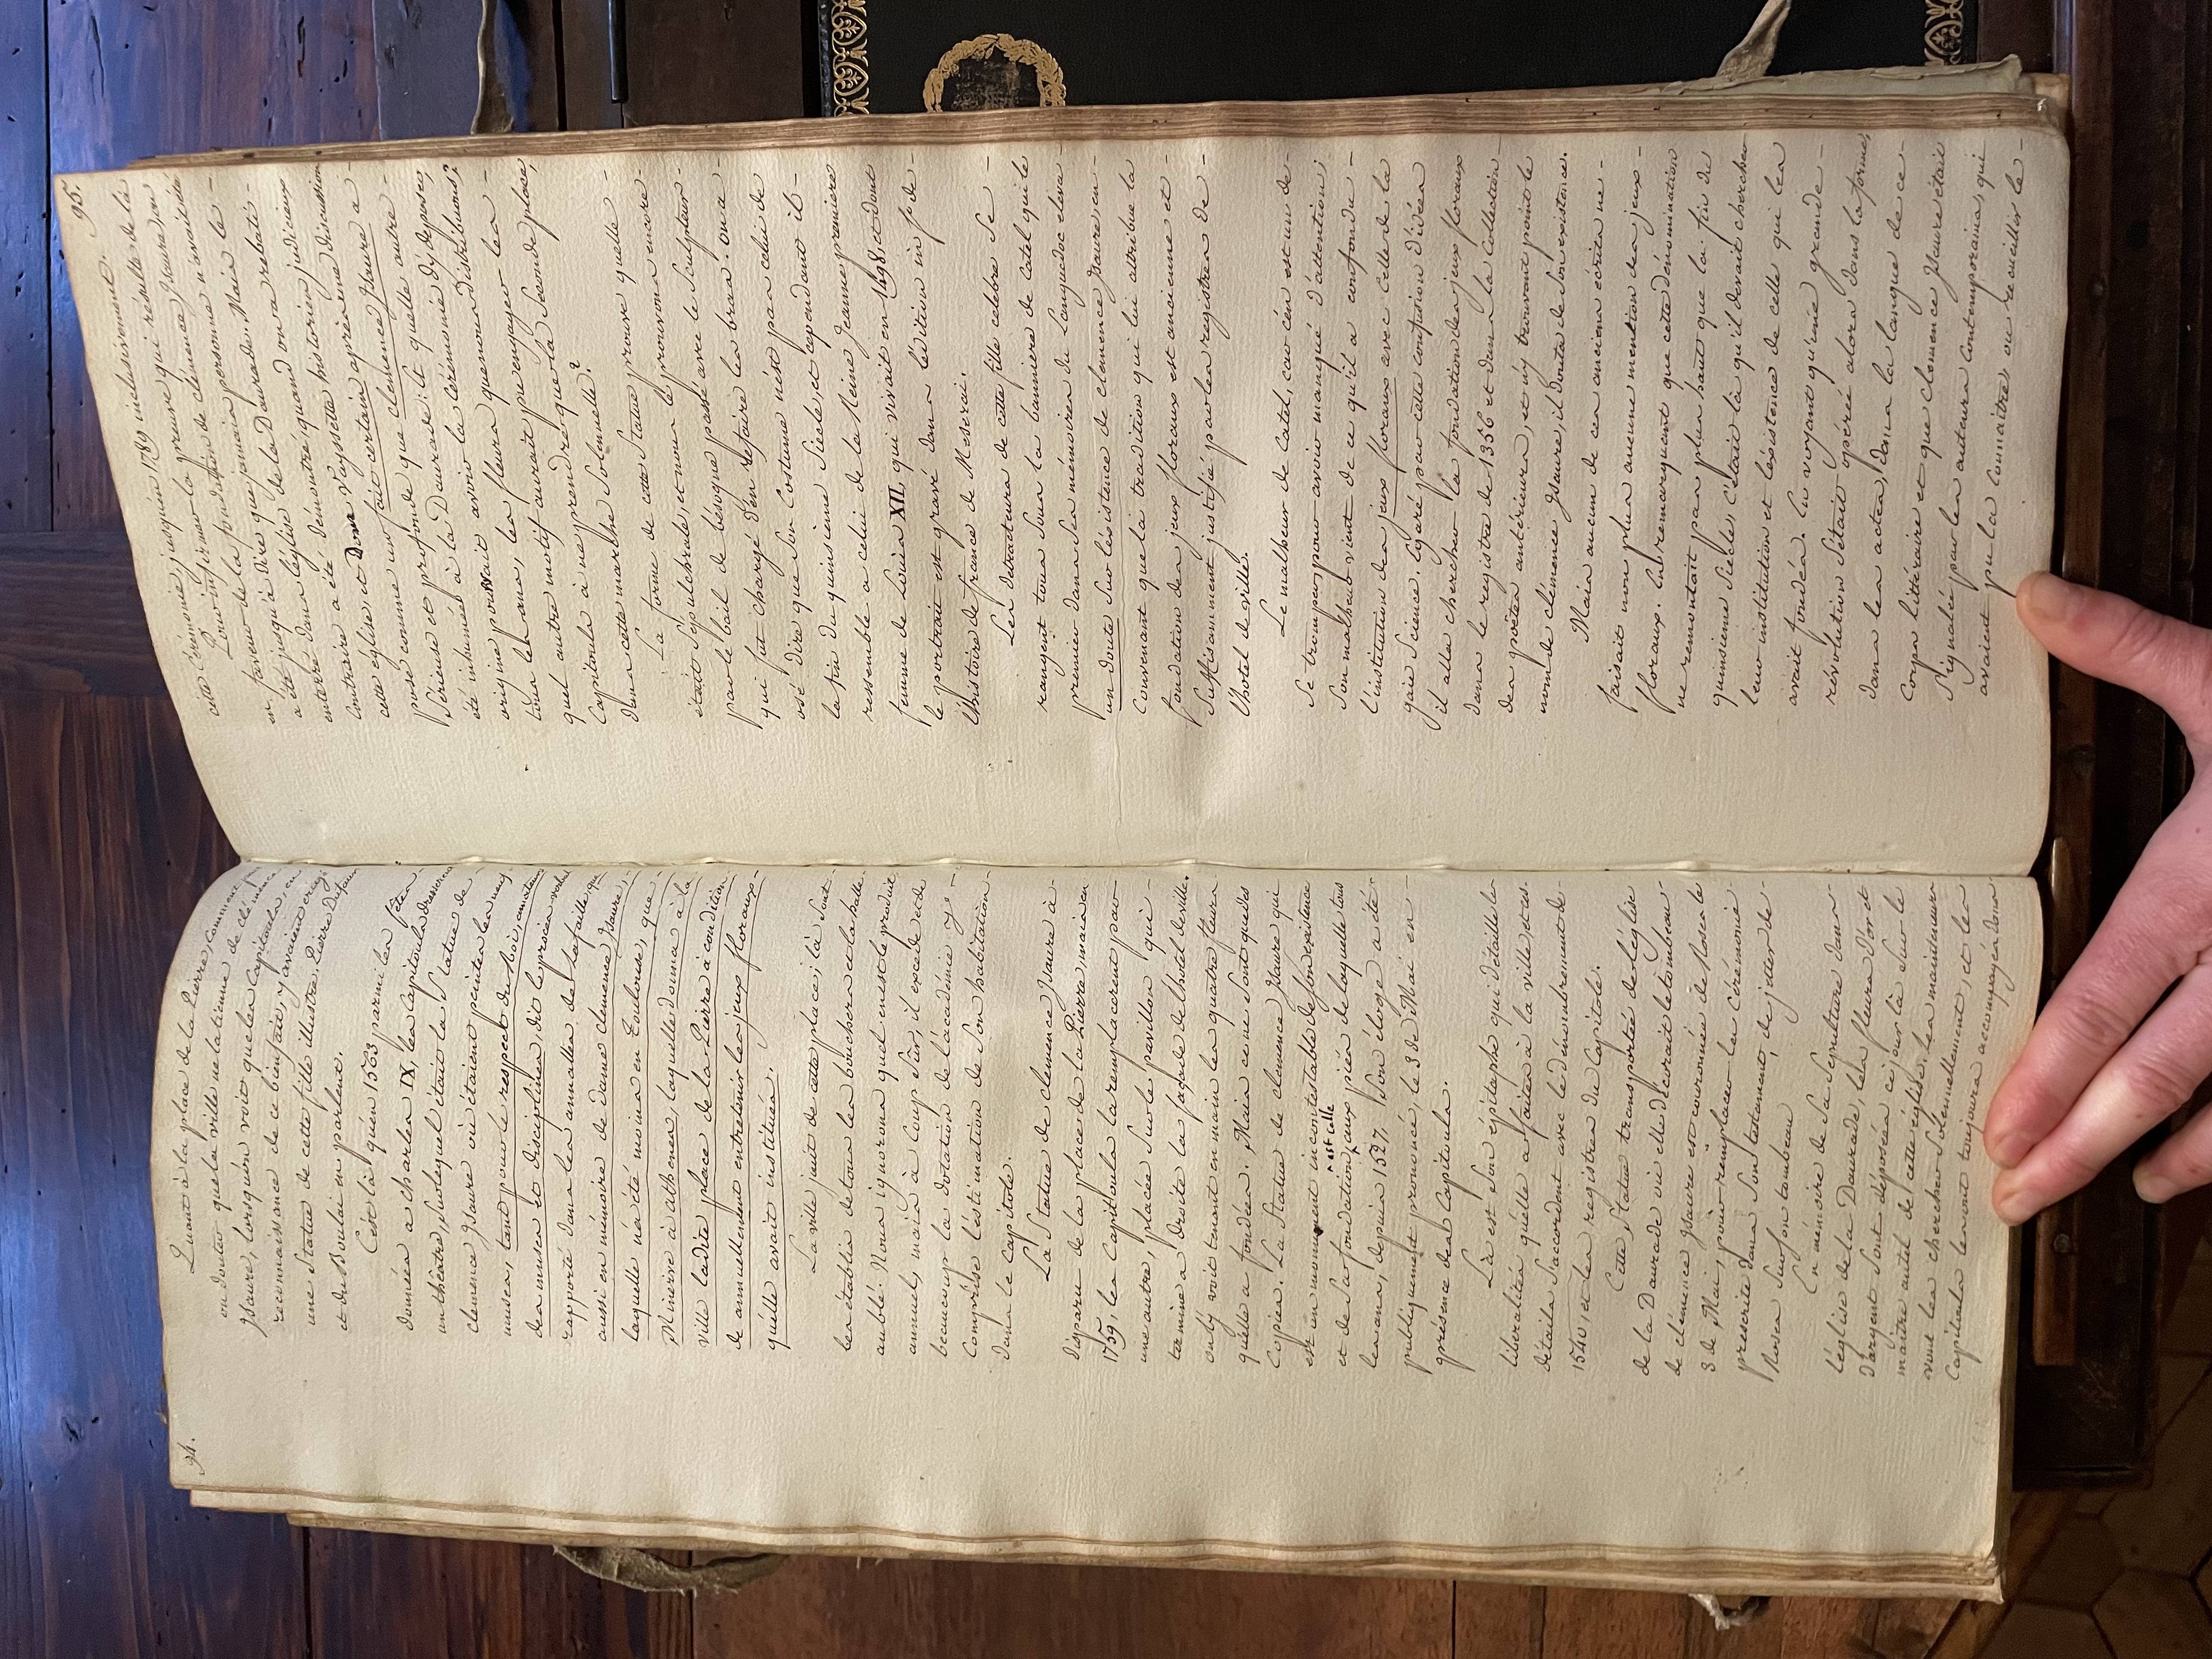 94.
Quant à la place de la Pierre, comment
ou douter que la ville ne la tienne de clémence
Isaure, lorsqu'on voit que les Capitouls, en
reconnaissance de ce bienfait, y avaient érigé
une Statue de cette fille illustre. Pierre Dufaur
et du Boulai en parlent.
C'est là qu'en 1563 parmi les fêtes
données a charles IX, les Capitouls dresserent
un théatre, sur lequel était la Statue de
clemence Isaure où étaient peintes les neuf
muses, tant pour le respect du Roi, amateur
des muses et disciplines, dit le procès verbal
rapporté dans les annales de lafaille, que
aussi en mémoire de dame clemence Isaure,
laquelle n'a été moins en Toulouse, que
Minerve à athenes, laquelle donna à la
ville ladite place de la Pierre à condition
de annuellement entretenir les jeux floraux
qu'elle avait institués.
La ville jouit de cette place; là sont
les établis de tous les bouchers et la halle
aublé. Nous ignorons quel en est le produit
annuel, mais à coup sûr, il excede et de
beaucoup la dotation de l'académie y
comprise l'estimation de son habitation
dans le Capitole.
La Statue de clemence Isaure à
disparu de la place de la Pierre, mais en
1759, les Capitouls la remplacerent par
une autre, placée sur le pavillon qui
termine a droite la façade de l'hotel de ville.
on l'y voit tenant en main les quatre fleurs
qu'elle a fondées. Mais ce ne sont que des
Copies. La Statue de clemence Isaure qui
est un monument incontestable de son existence
et de sa fondation, ^est celle aux pieds de laquelle tous
les ans, depuis 1527, son éloge a été
publiquement prononcé, le 3 de Mai en
présence des Capitouls.
Là est son épitaphe qui détaille les
libéralités qu'elle a faites à la ville, et ces
détails s'accordent avec le dénombrement de
1540, et les registres du Capitole.
Cette Statue transportée de l'église
de la Daurade où elle décorait le tombeau
de clémence Isaure est couronnée de Roses le
3 de Mai, pour remplacer la cérémonie
prescrite dans son testament, de jetter des
Roses sur son tombeau
En mémoire de sa sépulture dans
l'église de la Daurade, les fleurs d'or et
d'argent sont déposées ce jour là sur le
maitre autel de cette église. Les mainteneurs
vont les chercher solennellement, et les
Capitouls les ont toujours accompagnés dans
95.
cette Cérémonie, jusqu'en 1789 inclusivement.
Pour infirmer la preuve qui résulte de la
en faveur de la fondation de clémence Isaure on
a été jusqu'à dire que jamais personne n'avait été
enterré dans l'église de la Daurade. Mais le
Contraire a été démontré quand on a rebati
cette église, et Dom Vayssette historien judicieux
pose comme un fait certain après une discussion
Sérieuse et profonde que clemence Isaure a
été inhumée à la Daurade: Et quelle autre
origine pouvait avoir la Cérémonie d'y déposer,
tous les ans, les fleurs que nous distribuons?
quel autre motif aurait pu engager les
Capitouls à ne prendre que la Seconde place,
dans cette marche solennelle?
La forme de cette Statue prouve quelle
était Sépulchrale, et nous le prouvons encore
par le bail de bésogne passé avec le Sculpteur
qui fut chargé d'en refaire les bras. on a
osé dire que son Costume n'est pas celui de
la fin du quinzieme Siecle, et cependant il
ressemble a celui de la Reine Jeanne premiere
femme de Louis XII, qui vivait en 1498, et dont
le portrait est gravé dans l'édition in f.º de
l'histoire de france de Mezerai.
Les détracteurs de cette fille celebre se
rangent tous sous la banniere de Catel qui le
premier dans ses mémoires du Languedoc éleva
un doute sur l'éxistence de clemence Isaure en
Convenant que la tradition qui lui attribue la
fondation des jeux floraux est ancienne et
Suffisamment justifié par les registres de
l'hotel de ville.
Le malheur de Catel, car c'en est un de
se tromper, pour avoir manqué d'attention;
son malheur vient de ce qu'il a confondu
l'institution des jeux floraux avec celle de la
gaie Science. Egaré par cette confusion d'idées
il alla chercher la fondation des jeux floraux
dans le registre de 1356 et dans la Collection
des poëtes antérieurs, et n'y trouvant point le
nom de clémence Isaure, il douta de son existence.
Mais aucun de ces anciens écrits ne
faisait non plus aucune mention des jeux
floraux. En remarquant que cette dénomination
ne remontait pas plus haut que la fin du
quinzieme Siecle, c'était là qu'il devait chercher
leur institution et l'éxistence de celle qui les
avait fondés. En voyant qu'une grande
révolution s'était opérée alors dans les formes,
dans les actes, dans la langue de ce
Corps littéraire et que clemence Isaure était
signalée par les auteurs contemporains, qui
avaient pu la connaitre, ou recueillir le